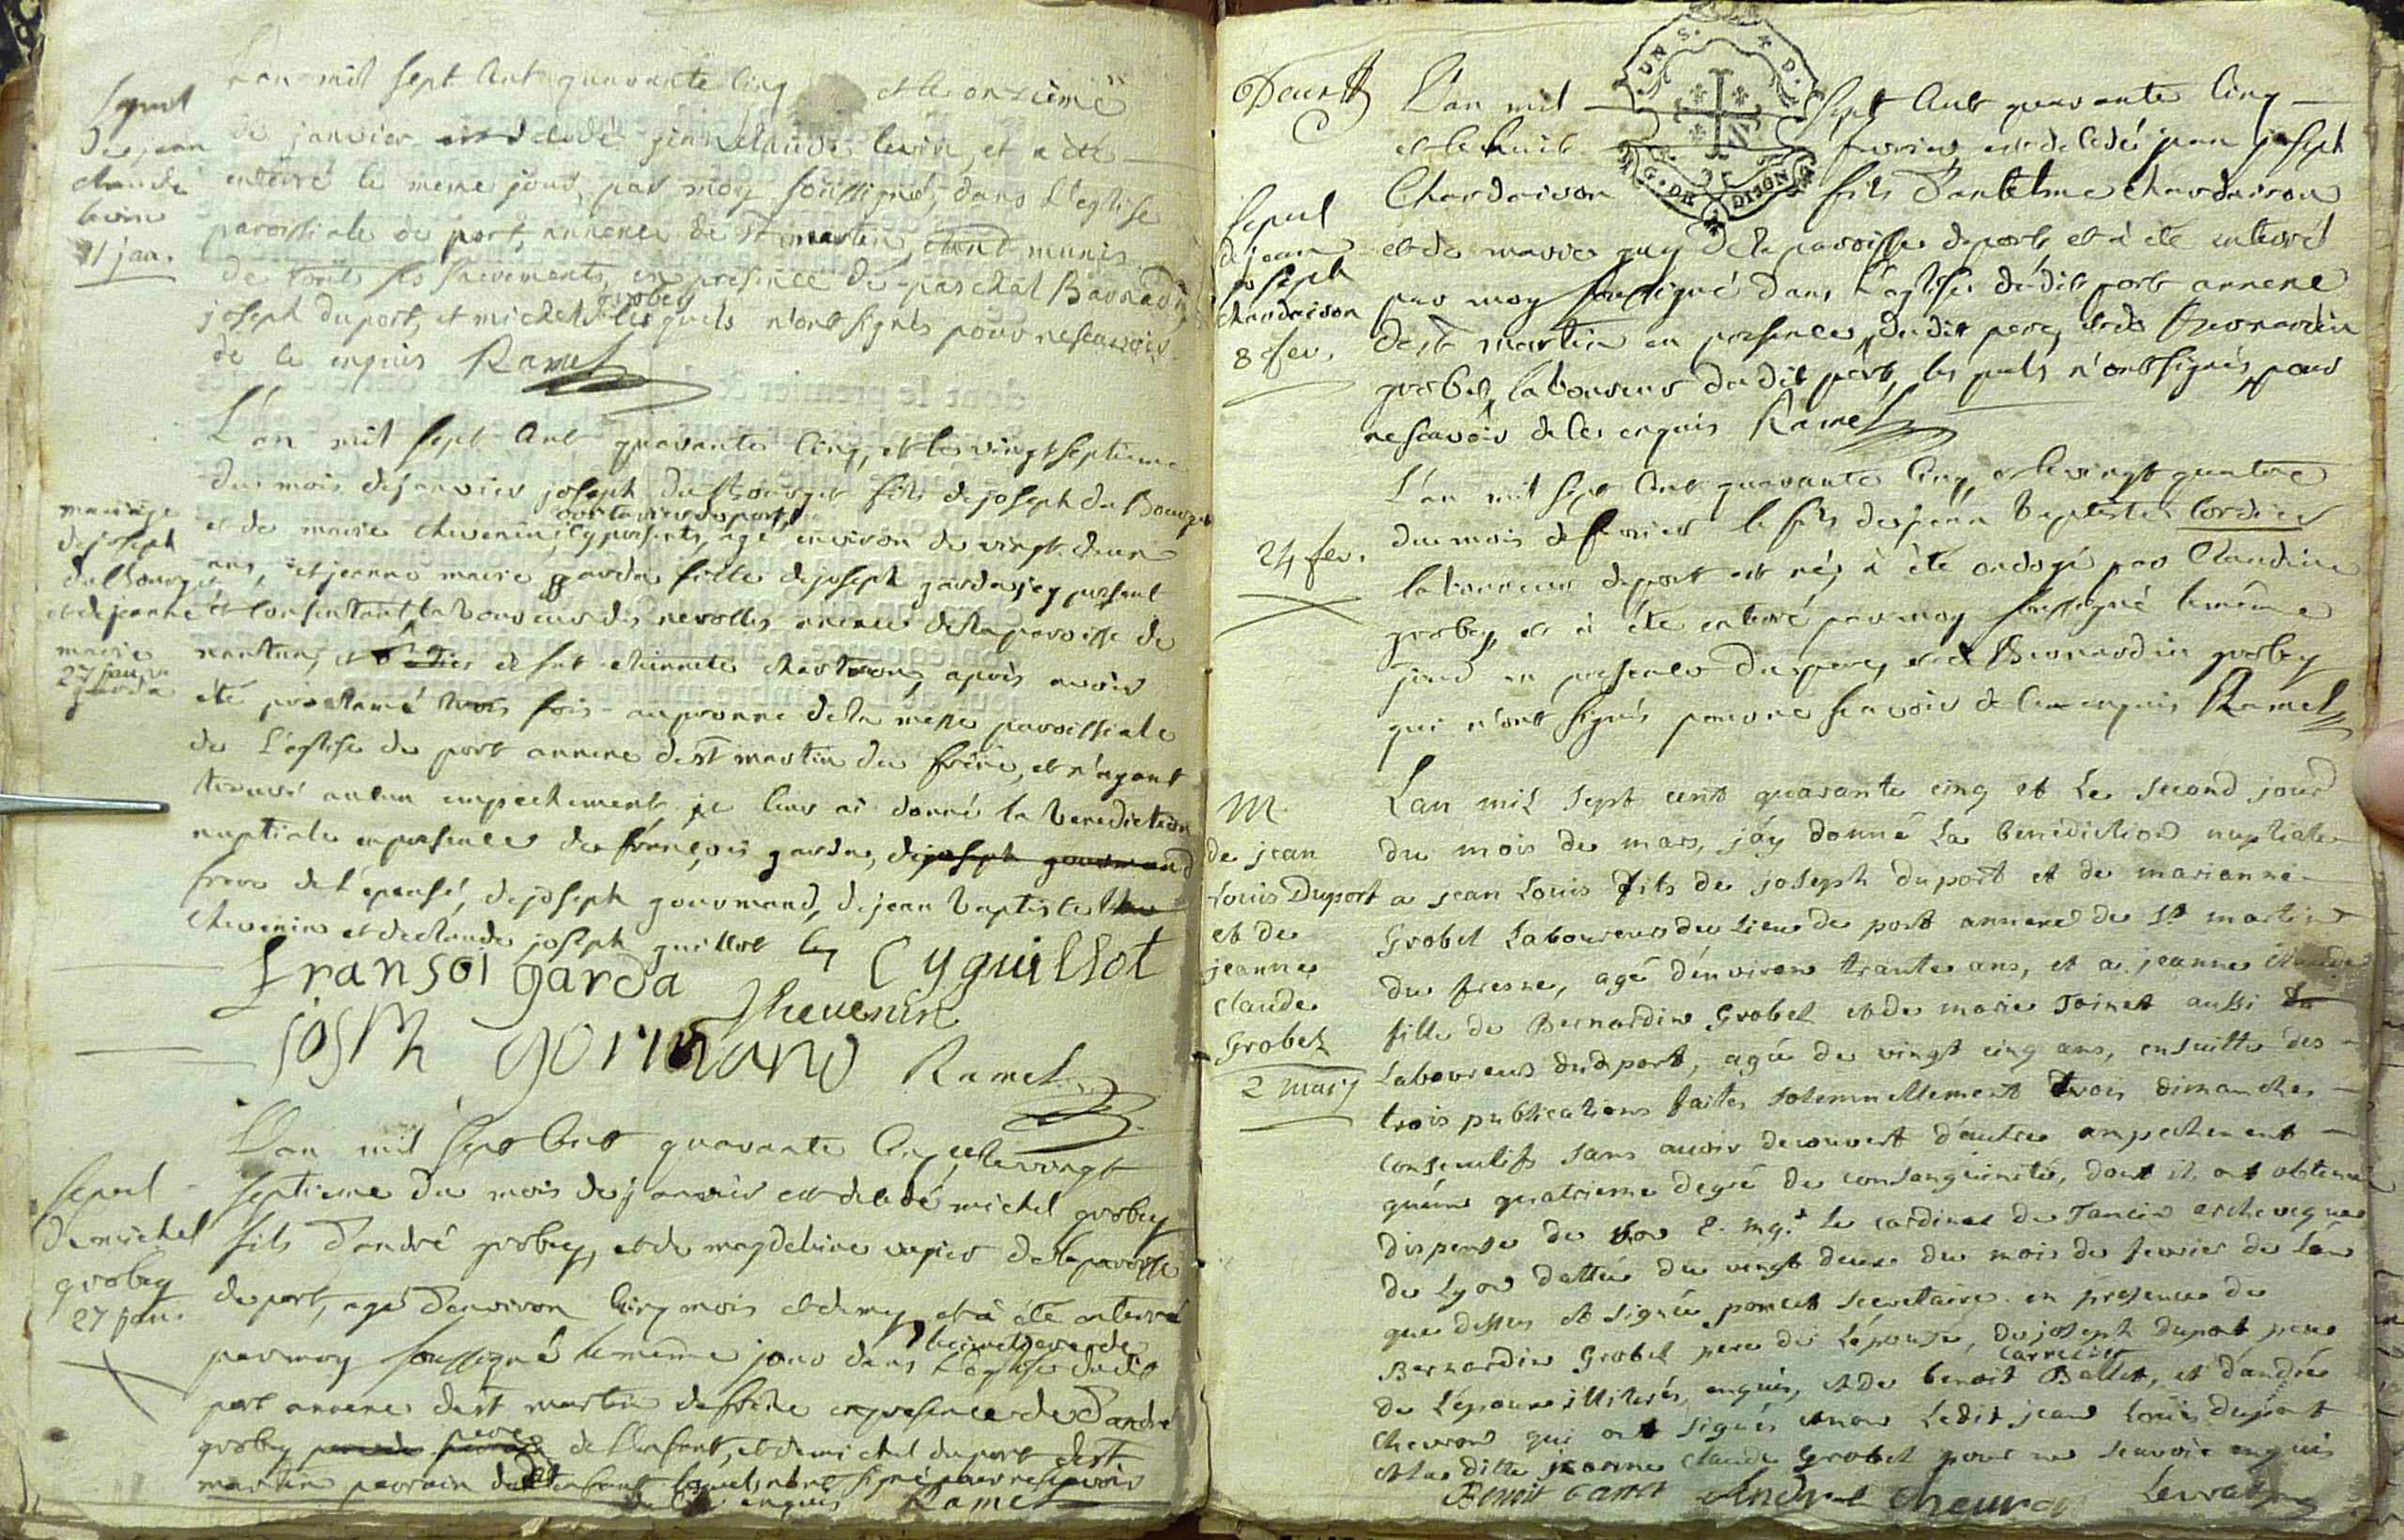 L'an mil sept cent quarante cinq et le onzieme
Sepul
de jean
claude
levin
11 jan.
de janvier est decedé jean claude levin, et a été
enterré le meme jour, par moy soussigné, dans l'eglise
paroissiale de port, annexe de st martin, etant munis
de touts ses sacrements, en presence de paschal Bernardin
joseph duport, et michel grobey lesquels n'ont signés pour ne scavoir
de ce enquis Ramel
mariage
de joseph
du Bourget
et de jeanne
marie
garda
27 janv.
L'an mil sept cent quarante cinq, et le vingt septieme
du mois de janvier joseph du Bourget fils de joseph du Bourget
et de marie chevenin, icy presents, agé environ de vingt deux
ans, et jeanne marie garda fille de joseph garda icy present
et consentant laboureur des nerolles annexe de la paroisse de
nantua, et de fut etiennette chartron, après avoir
été proclamé trois fois au pronne de la messe paroissiale
de l'eglise de port annexe de st martin du frêne, et n'ayant
trouvé aucun empechement je leur ai donné la benediction
nuptiale en presence de françois garda, de joseph gourmand
frere de l'epousé, de joseph gourmand, de jean baptiste
chevenin et de claude joseph guillot
fransoi garda Cyguillot
Thevenin
josph gormand Ramel
Sepul
de michel
grobey
27 janv.
L'an mil sept cent quarante cinq, et le vingt
septieme du mois de janvier est decedé michel grobey
fils d'andré grobey, et de magdeleine de la paroisse
de port, agé d'environ cinq mois et demy, et a été enterré
par moy soussigné le meme jour dans l'eglise dudit
port annexe de st martin de frêne en presence de d'andré
grobey pere de l'enfant, et de michel duport de st
martin parrain dudit enfant lesquels n'ont signé pour ne scavoir
de ce enquis Ramel
Deux
UNS. D.
G. DE DIJON
L'an mil sept cent quarante cinq
Sepul
de jean
joseph
chardeison
8 fev.
et le huit fevrier est decedé jean joseph
Chardaison fils d'antelme chardaison
et de marie guy de la paroisse de port, et a été enterré
par moy soussigné dans l'eglise dudit port annexe
de st martin en presence dudit pere, et de Bernardin
grobel, laboureur dudit port, lesquels n'ont signés, pour
ne scavoir de ce enquis Ramel
24 fev.
L'an mil sept cent quarante cinq, et le vingt quatre
du mois de fevrier le fils de jean baptiste Cordier
laboureur de port est né, a été ondoyé par Claudine
grobey, et a été enterré par moy soussigné le même
jour en presence du pere, et de Bernardin grobey
qui n'ont signés pour ne scavoir de ce enquis Ramel
M.
de jean
Louis Duport
et de
jeanne
claude
Grobel
2 mars
L'an mil sept cent quarante cinq et le second jour
du mois de mars, j'ay donné la benediction nuptiale
a jean Louis fils de joseph duport et de marianne
Grobel Laboureur du lieu de port annexe de st martin
du fresne, agé d'environ trante ans, et a jeanne claude
fille de Bernardin Grobel et de marie Toinet aussi
Laboureur dud port, agée de vingt cinq ans, ensuitte des
trois publications faites solemnellement trois dimanches
consecutifs sans avoir decouvert d'autre ampechement
qu'un quatrieme degré de consanguinité, dont il ont obtenu
dispense de son E. mg.r le cardinal de Tancin archeveque
de Lyon dattée du vingt deux du mois de fevrier de l'an
que dessus et signée poncet secretaire. en presence de
Bernardin Grobel pere de l'epouse, de joseph duport pere
de l'epoux illiterés, enquis, et de benoit Ballet, et d'andré
chevron qui ont signés et non ledit jean Louis duport
et la ditte jeanne claude Grobel pour ne scavoir enquis
Benoit carret André cheuron Levrat